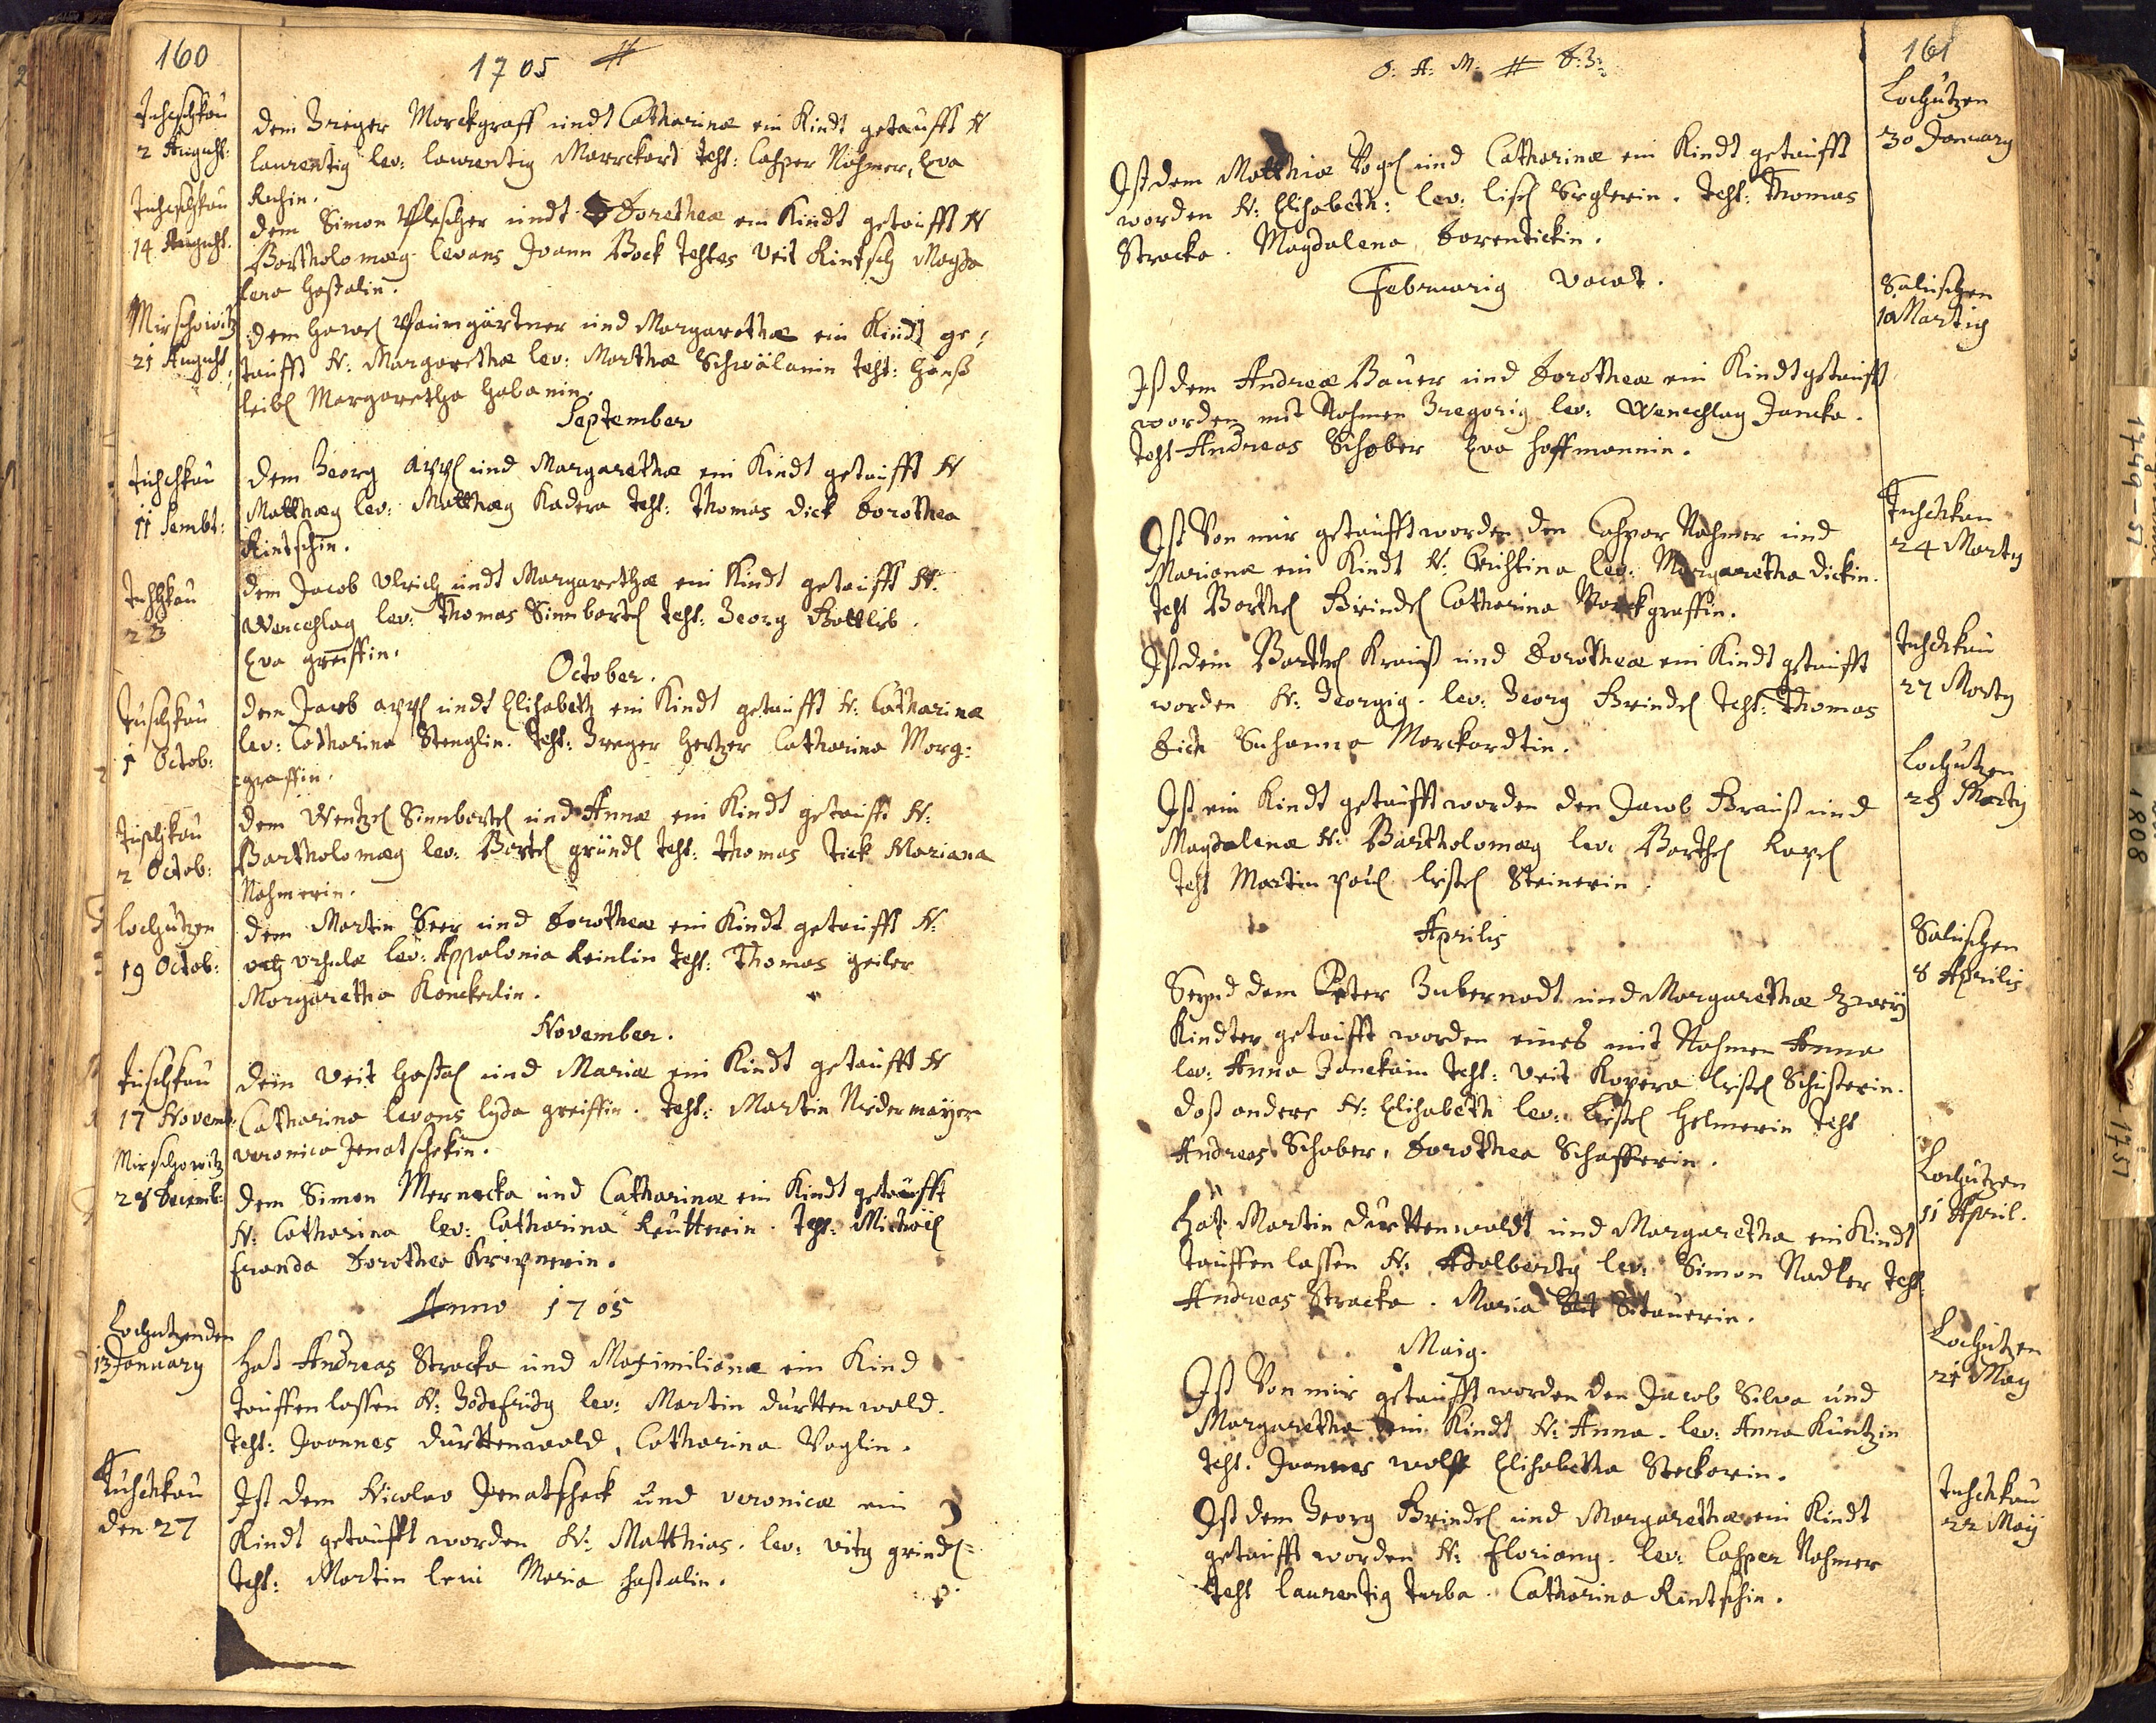 160
1705
Tuschkau
2 August:
dem Greger Morckgraff undt Catharinæ ein Kindt getaufft N
laurentig lev: laurentig Marrckart test: Casper Nahmer, Eva
Rachin.
Tuschkau
14 August
dem Simon Plescher undt Dorotheæ ein Kindt getaufft N
Bartholomæg levans Joann Bock testes Veit Rintsch Magda
lena Hastalin.
Mirschowitz
21 August
dem Hawel Paumgärtner und Margarethæ ein Kindt ge,
taufft N: Margarethæ lev: Marthæ Schwälanin test: Hanß
leibl Margaretha Habanin.
September
Tuschkau
11 Sembt:
dem Georg Appl und Margarethæ ein Kindt getaufft N
Matthæg lev: Matthæg Kadera test: Thomas Dick Dorothea
Rintschin.
Tuschkau
23
dem Jacob Ulrich undt Margarethæ ein Kindt getaufft N:
Wenceslag lev: Thomas Simbartl test: Georg Gottlieb.
Eva greiffin.
October.
Tuschkau
1 Octob:
dem Jacob Appl undt Elisabeth ein Kindt getaufft N: Catharinæ
lev: Catharina Stenglin. test: Greger Hertzer Catharina Marg:
graffin.
Tuschkau
2 Octob:
dem Wentzel Simbartl und Annæ ein Kindt getaufft N:
Bartholomæg lev: Bartl gründl test: Thomas Tick Mariana
Nahmerin.
lochutzen
19 Octob:
dem Martin Beer und Dorotheæ ein Kindt getaufft N:
Ursulæ lev: Appolonia Reinlin test: Thomas geiler
Margaretha Konckerlin.
November.
Tuschkau
17 Novemb:
dem Veit Hastal und Mariæ ein Kindt getaufft N
Catharina levans lyda greiffin. test: Martin Nidermayer
Veronica Jenatschekin.
Mirschowitz
28 Decemb:
dem Simon Mernacka und Catharinæ ein Kindt getaufft
N: Catharina lev: Catharina Reutterin. test: Michael
franda Dorothea Kripnerin.
Anno 1705
Lochutzen den
13 January
Hat Andreas Stracka und Maximilianæ ein Kind
tauffen lassen N: Godefridg lev: Martin durttenwald.
test: Joannes durttenwald, Catharina Voglin.
Tuschkau
den 27
Ist dem Nicolao Jenatscheck und Veronicæ ein
Kindt getaufft worden N: Matthias. lev: Vitg grindl
test: Martin leni Maria Hastalin.
O: A: M: D: G:
161
Lochutzen
30 January
Ist dem Matthiæ Vogl und Catharinæ ein Kindt getaufft
worden N: Elisabeth: lev: lisl Siglerin. test: Thomas
Stracka. Magdalena Dorentickin.
Februarig vacat.
Saluschen
10 Martig
Ist dem Andreæ Bauer und Dorotheæ ein Kindt getaufft
worden mit Nahmen Gregorig lev: Wenceslag Jancka.
test Andreas Schober Eva Hoffmannin.
Tuschkau
24 Marty
Ist Von mir getaufft worden den Caspar Nahmer und
Marianæ ein Kindt N: Christina lev: Margaretha Dickin.
test Barthl Brindl Catharina Morckgraffin.
Tuschkau
27 Marty
Ist dem Barthl Krauß und Dorotheæ ein Kindt getaufft
worden N: Georgig. lev: Georg Brindl test: Thomas
Dick Susanna Marckardtin.
Lochutzen
29 Marty
Ist ein Kindt getaufft worden den Jacob Krauß und
Magdalenæ N: Bartholomæg lev: Barthl Kapl
test Martin Paul lisl Steinerin.
Aprilis
Saluschen
8 Aprilis
Seynd dem Peter Gubernadt und Margarethæ Zwey
Kindter getaufft worden eines mit Nahmen Anna
lev: Anna Janckain test: Veit Kopera lisl Schusterin.
daß andere N: Elisabeth lev: lisl Helmerin test
Andreas Schober, Dorothea Schafferin.
Lochutzen
11 April.
Hat Martin durttenwaldt und Margaretha ein Kindt
tauffen lassen N: Adalbertg lev: Simon Nadler test:
Andreas Stracka. Maria Sitauerin.
Maig.
Lochutzen
21 May
Ist Von mir getaufft worden den Jacob Silva und
Margaretha ein Kindt N: Anna. lev: Anna Kuntzin
test. Joannes wolff Elisabetha Steckerin.
Tuschkau
22 May
Ist dem Georg Brindl und Margarethæ ein Kindt
getaufft worden N: Floriang. lev: Casper Nahmer
test laurentig Turba. Catharina Rintschin.
1749-51
1808
1751